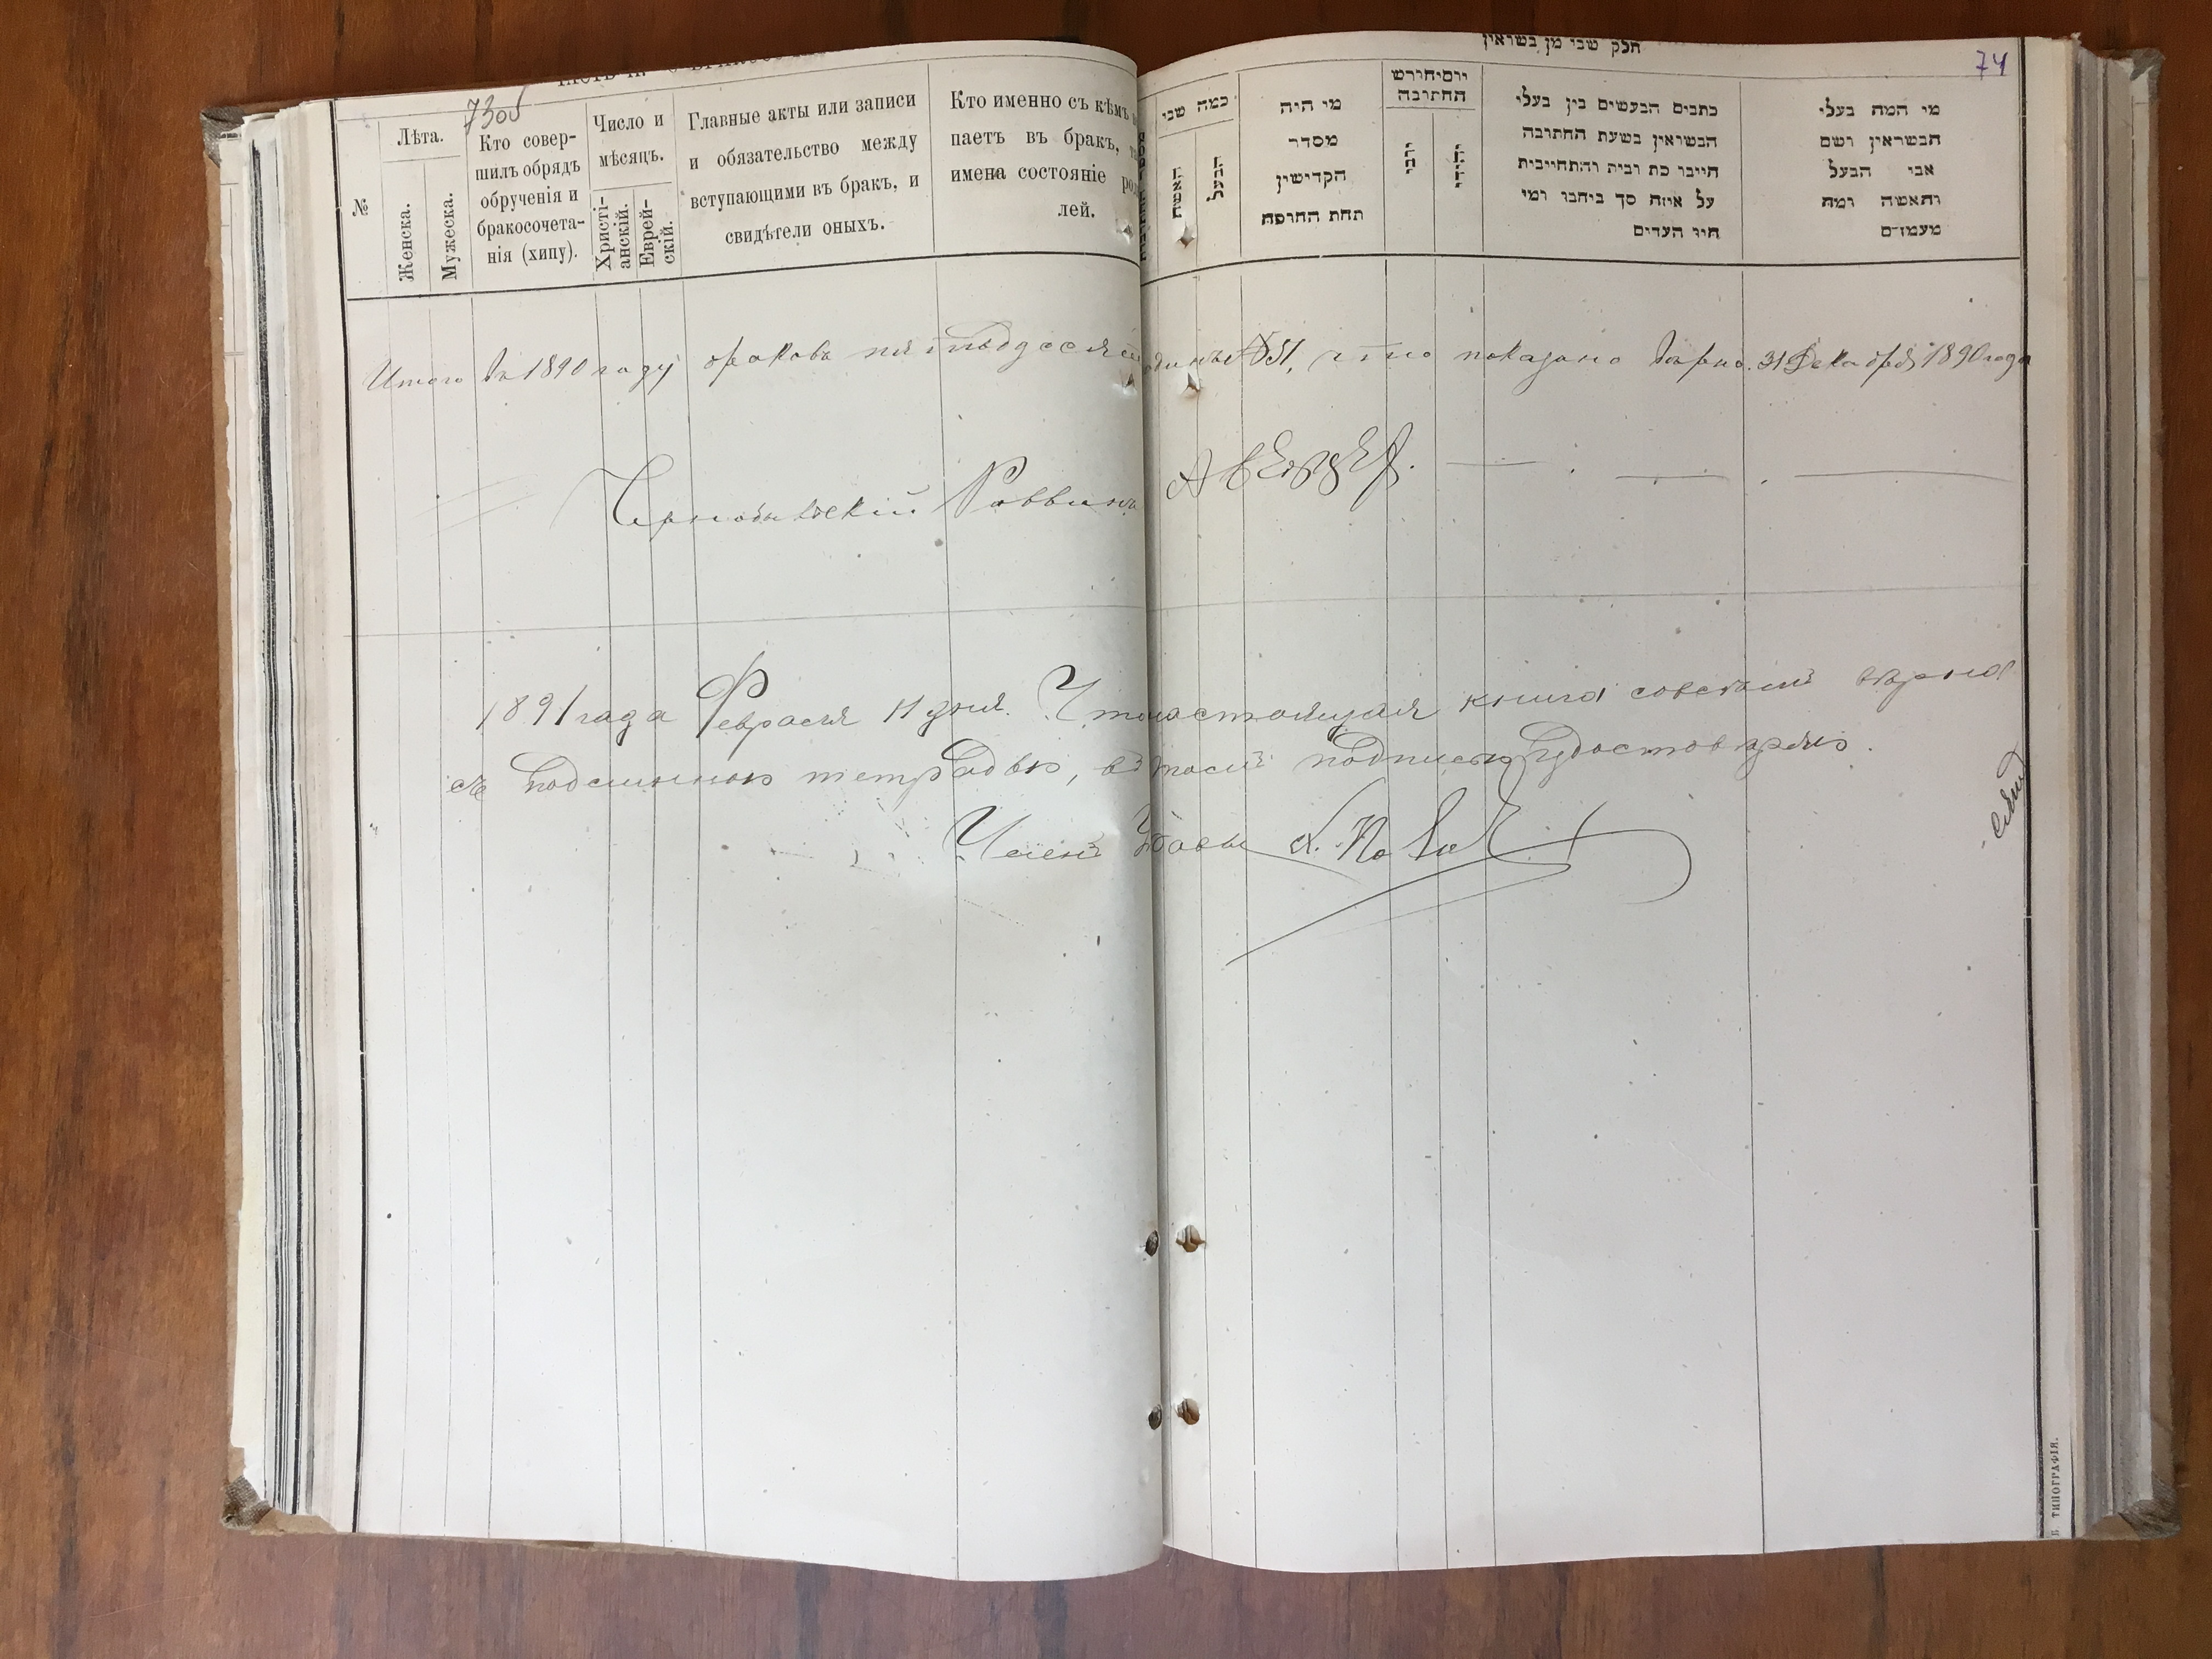 7305
74
חלק שני מן נשואין
№
Лѣта.
Женска.
Мужеска.
Кто совер-
шилъ обрядъ
обрученія и
бракосочета-
нія (хипу).
Число и
мѣсяцъ.
Христі-
анскій.
Еврей-
скій.
Главные акты или записи
и обязательство между
вступающими въ бракъ, и
свидѣтели оныхъ.
Кто именно съ кѣмъ
паетъ въ бракъ,
имена состояніе
лей.
כמה שני
האשה
הבעל
מי היה
מסדר
הקדישין
תחת החופה
יום וחודש
החתונה
יהודי
כתבים הנעשים בין בעלי
הנשואין בשעת החתונה
חייבו כת ובית והתחייבית
על איזה סך ביחבו ומי
היו העדים
מי המה בעלי
הנשואין ושם
אבי הבעל
והאשה ומה
מעמדם
Итого въ 1890 году браковъ пятьдесятъ одинъ 51, что показано вѣрно. 31 Декабря 1890 года
Чернобыльскій Раввинъ
1891 года Февраля 11 дня. Что настоящая книга совсѣмъ вѣрна
съ подлинною тетрадью, въ томъ подписью удостовѣряю.
Членъ Управы
ТИПОГРАФІЯ.